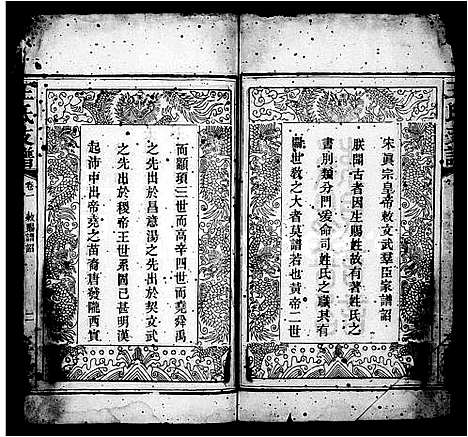 宋眞宗皇帝敕文武羣臣家譜詔
朕聞古者因生賜姓故有著姓氏之
書別類分門爰命司姓氏之職其有
關世敎之大者莫譜若也黃帝二世
而顓頊三世而高辛四世而堯舜禹
之先出於昌意湯之先出於契文武
之先出於稷帝王世系固已甚明漢
起沛中出帝堯之苗裔唐發隴西實
氏支譜
卷一
敕賜譜詔